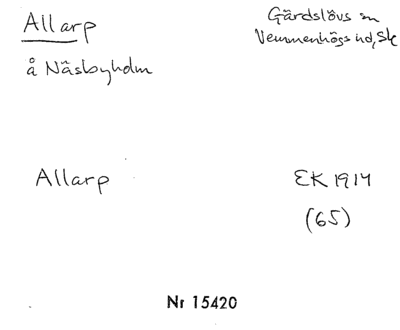 Allarp
Gärdslövs sn
Vemmenhögs hd, Sk
å Näsbyholm
Allarp
EK 1914
(65)
Nr 15420